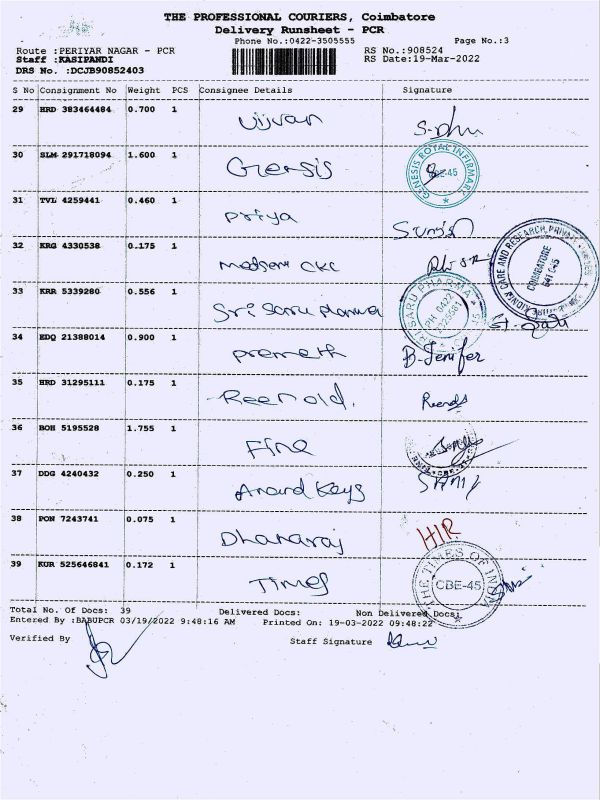 THE PROFESSIONAL COURIERS, Coimbatore
Delivery Runsheet - PCR
Phone No.:0422-3505555 Page No.:3
Route :PERIYAR NAGAR - PCR RS No.:908524
Staff :KASIPANDI RS Date:19-Mar-2022
DRS No. :DCJB90852403
S No Consignment No Weight PCS Consignee Details Signature
29 HRD 383464484 0.700 1
30 SLM 291718094 1.600 1
GENESIS ROYAL INFIRMARY CBE-45
31 TVL 4259441 0.460 1 Priya
32 KRG 4330538 0.175 1
CARE AND RESEARCH PRIVATE COIMBATORE
33 KRR 5339280 0.556 1 Sri Saru Pharma
SRI SARU PHARMA PH 0422
34 EDQ 21388014 0.900 1 B. Jenifer
35 HRD 31295111 0.175 1
36 BOH 5195528 1.755 1 Fine
37 DDG 4240432 0.250 1 Anand Keys
38 PON 7243741 0.075 1 Dhanaraj
39 KUR 525646841 0.172 1 Times
THE TIMES OF INDIA CBE-45
Total No. Of Docs: 39 Delivered Docs: Non Delivered Docs:
Entered By :BABUPCR 03/19/2022 9:48:16 AM Printed On: 19-03-2022 09:48:22
Verified By Staff Signature